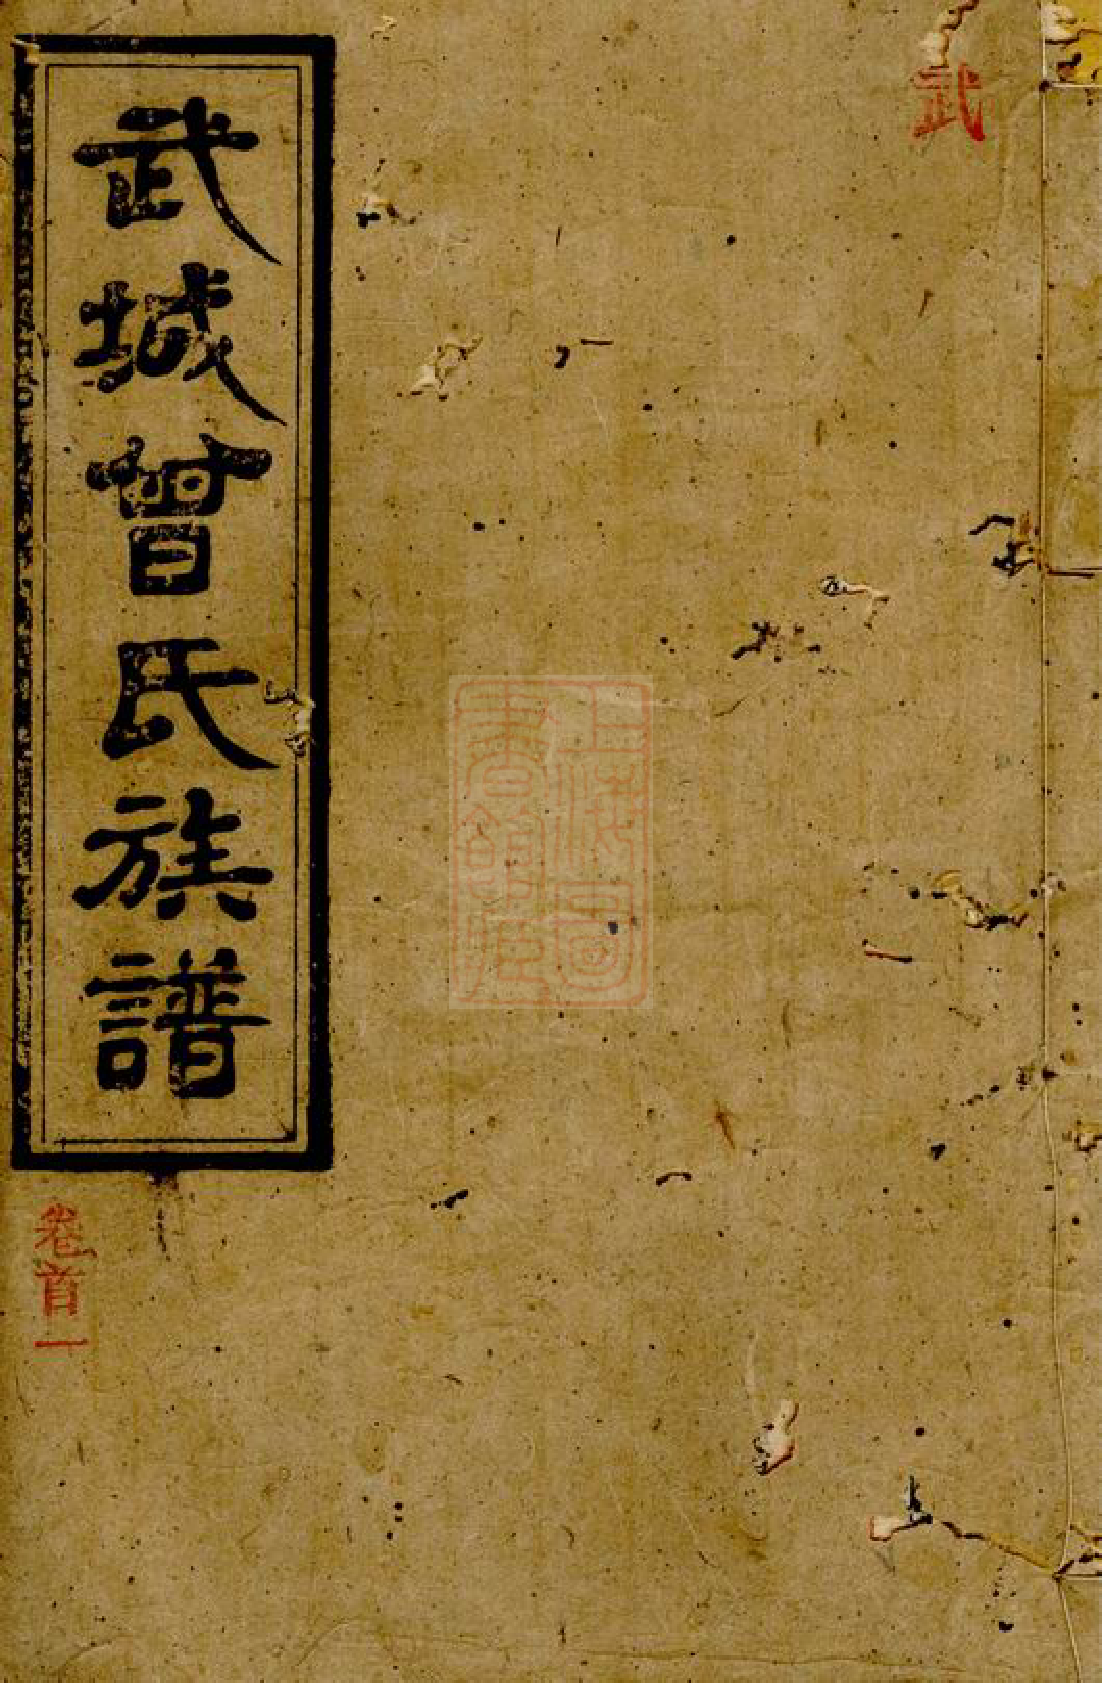 武
武城曾氏族譜
卷首一
上海圖
書館藏